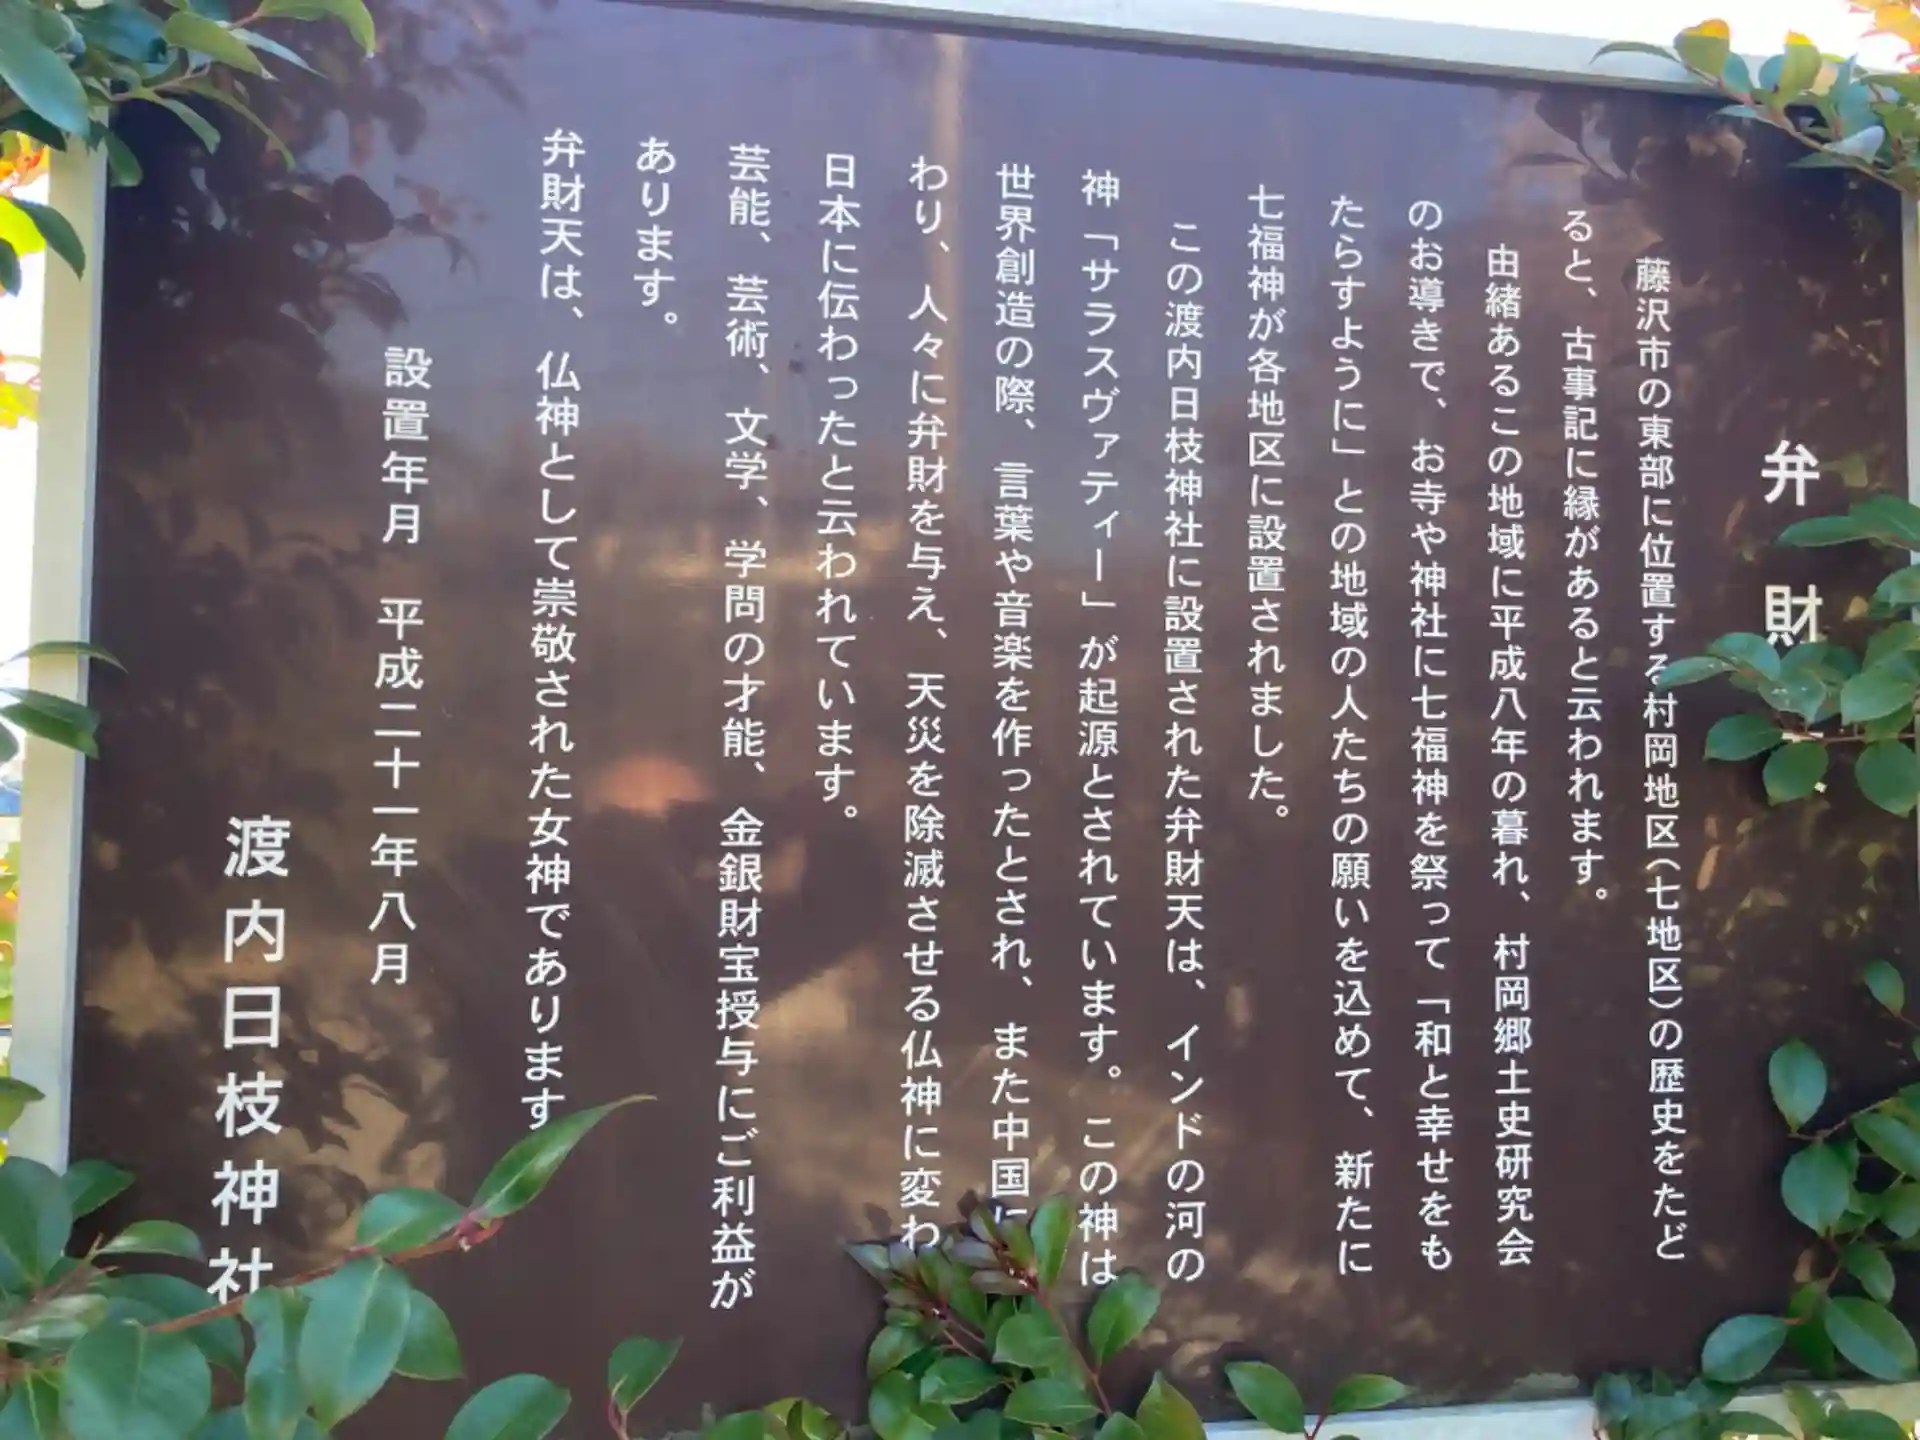 弁財
藤沢市の東部に位置する村岡地区(七地区)の歴史をたど
ると、古事記に縁があると云われます。
由緒あるこの地域に平成八年の暮れ、村岡郷土史研究会
のお導きで、お寺や神社に七福神を祭って「和と幸せをも
たらすように」との地域の人たちの願いを込めて、新たに
七福神が各地区に設置されました。
この渡内日枝神社に設置された弁財天は、インドの河の
神「サラスヴァティー」が起源とされています。この神は
世界創造の際、言葉や音楽を作ったとされ、また中国に
わり、人々に弁財を与え、天災を除滅させる仏神に変わ
日本に伝わったと云われています。
芸能、芸術、文学、学問の才能、金銀財宝授与にご利益が
あります。
弁財天は、仏神として崇敬された女神であります
設置年月 平成二十一年八月
渡内日枝神社